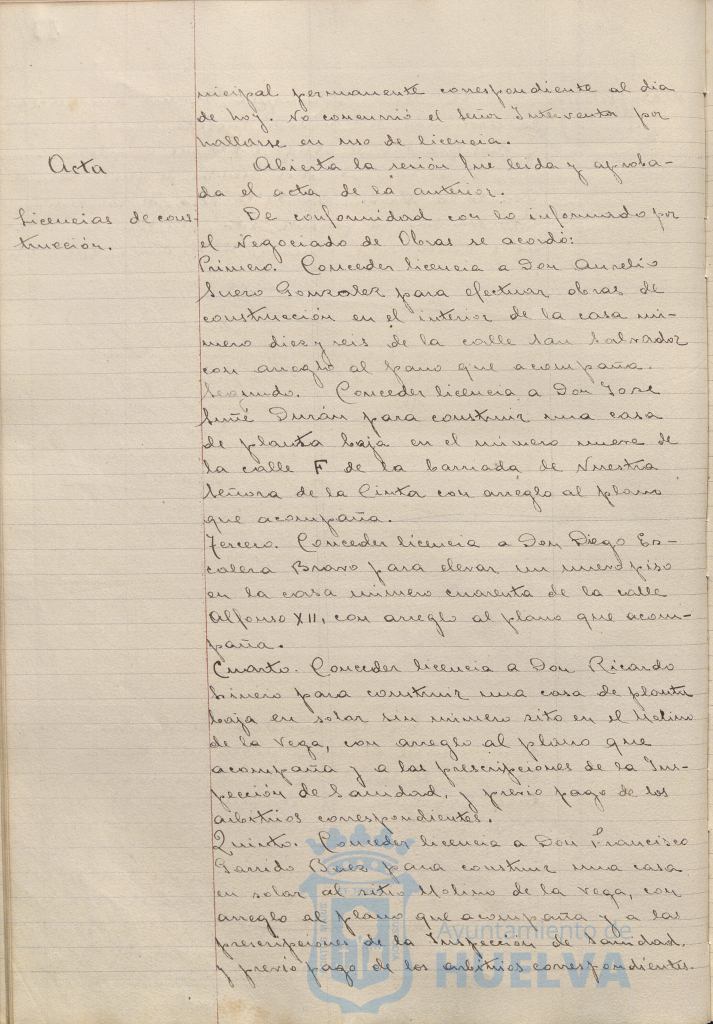 nicipal permanente correspondiente al dia
de hoy. No concurrió el Señor Interventor por
hallarse en uso de licencia.
Acta
Abierta la sesión fué leida y aproba-
da el acta de la anterior.
Licencias de cons-
trucción.
De conformidad con lo informado por
el Negociado de Obras se acordó:
Primero. Conceder licencia a Don Aurelio
Suero Gonzalez para efectuar obras de
construcción en el interior de la casa nú-
mero diez y seis de la calle San Salvador
con arreglo al pano que acompaña.
Segundo. Conceder licencia a Don Jose
Suñé Durán para construir una casa
de planta baja en el número nueve de
la calle F de la barriada de Nuestra
Señora de la Cinta con arreglo al plano
que acompaña.
Tercero. Conceder licencia a Don Diego Es-
calera Bravo para elevar un nuevo piso
en la casa número cuarenta de la calle
Alfonso XII, con arreglo al plano que acom-
paña.
Cuarto. Conceder licencia a Don Ricardo
Sinero para construir una casa de planta
baja en solar sin número sito en el Molino
de la Vega, con arreglo al plano que
acompaña y a las prescripciones de la Ins-
pección de Sanidad, y previo pago de los
arbitrios correspondientes.
Quinto. Conceder licencia a Don Francisco
Garrido Baez para construir una casa
en solar al sitio Molino de la Vega, con
arreglo al plano que acompaña y a las
prescripciones de la Inspección de Sanidad,
y previo pago de los arbitrios correspondientes.
Ayuntamiento de
HUELVA